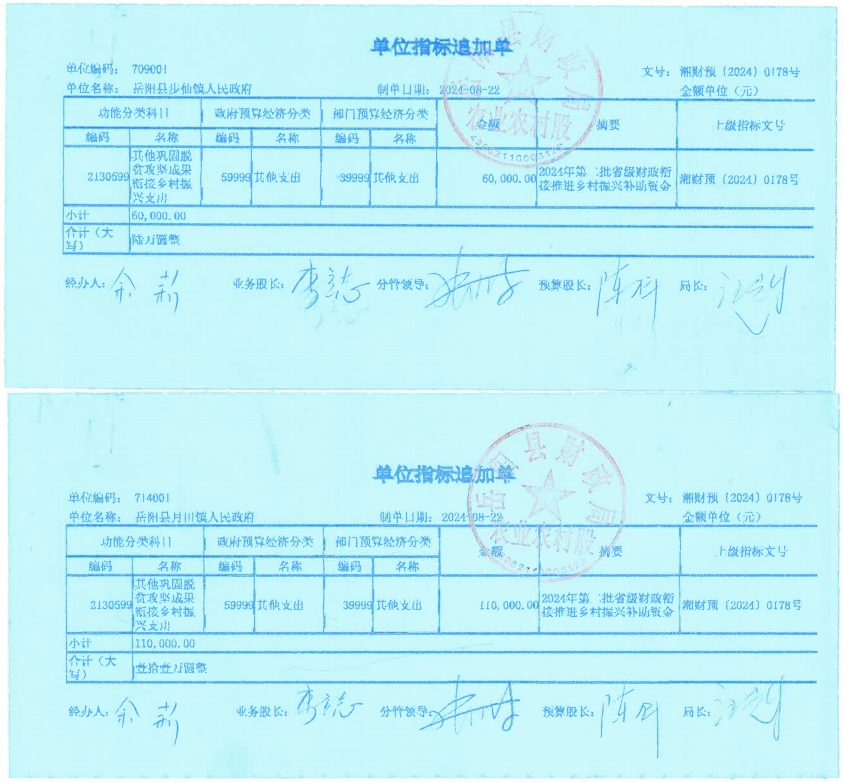 单位指标追加单
单位编码： 709001
文号： 湘财预〔2024〕0178号
单位名称： 岳阳县步仙镇人民政府
制单日期：2024-08-22
金额单位（元）
功能分类科目 政府预算经济分类 部门预算经济分类 金额 摘要 上级指标文号
编码 名称 编码 名称 编码 名称
2130599 其他巩固脱贫攻坚成果衔接乡村振兴支出 59999 其他支出 39999 其他支出 60,000.00 2024年第二批省级财政衔接推进乡村振兴补助资金 湘财预〔2024〕0178号
小计 60,000.00
合计（大写） 陆万圆整
经办人： 余莉 业务股长： 李志 分管领导： 预算股长： 陈科 局长：
县财政局
农业农村股
单位指标追加单
单位编码： 714001
文号： 湘财预〔2024〕0178号
单位名称： 岳阳县月田镇人民政府
制单日期：2024-08-22
金额单位（元）
功能分类科目 政府预算经济分类 部门预算经济分类 金额 摘要 上级指标文号
编码 名称 编码 名称 编码 名称
2130599 其他巩固脱贫攻坚成果衔接乡村振兴支出 59999 其他支出 39999 其他支出 110,000.00 2024年第二批省级财政衔接推进乡村振兴补助资金 湘财预〔2024〕0178号
小计 110,000.00
合计（大写） 壹拾壹万圆整
经办人： 余莉 业务股长： 李志 分管领导： 预算股长： 陈科 局长：
岳阳县财政局
农业农村股